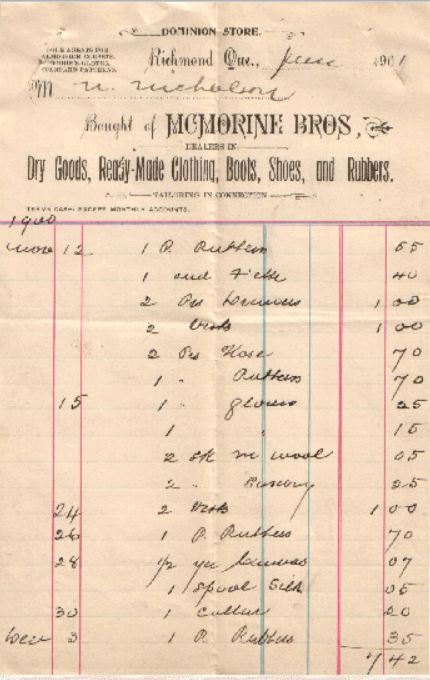 DOMINION STORE.
SOLE AGENTS FOR
Richmond Que., June 1901
M N. Nicholson
Bought of MCMORINE BROS,
DEALERS IN
Dry Goods, Ready-Made Clothing, Boots, Shoes, and Rubbers.
TAILORING IN CONNECTION
TERMS CASH EXCEPT MONTHLY ACCOUNTS.
1900
Nov 12 1 P. Rubbers 65
1 40
2 Prs 1 00
2 Vests 1 00
2 Prs Hose 70
1 " Rubbers 70
15 1 " gloves 25
1 " 15
2 sk wool 05
2 " 25
24 2 Vests 1 00
26 1 P. Rubbers 70
28 1/2 yd canvas 07
1 Spool Silk 05
30 1 collar 20
Dec 3 1 P. Rubbers 35
7 42